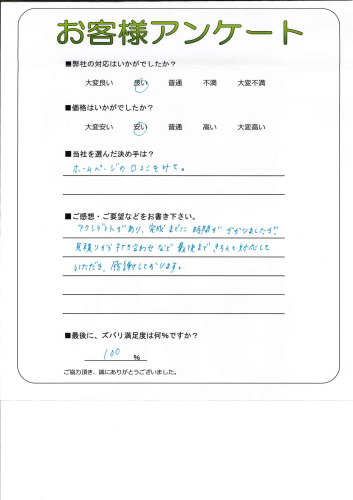 お客様アンケート
■弊社の対応はいかがでしたか？
大変良い 良い 普通 不満 大変不満
■価格はいかがでしたか？
大変安い 安い 普通 高い 大変高い
■当社を選んだ決め手は？
ホームページの口コミをみて。
■ご感想・ご要望などをお書き下さい。
アクシデントがあり、完成までに時間がかかりましたが
見積りから打ち合わせなど最後まできちんと対応して
いただき、感謝しております。
■最後に、ズバリ満足度は何％ですか？
100 ％
ご協力頂き、誠にありがとうございました。